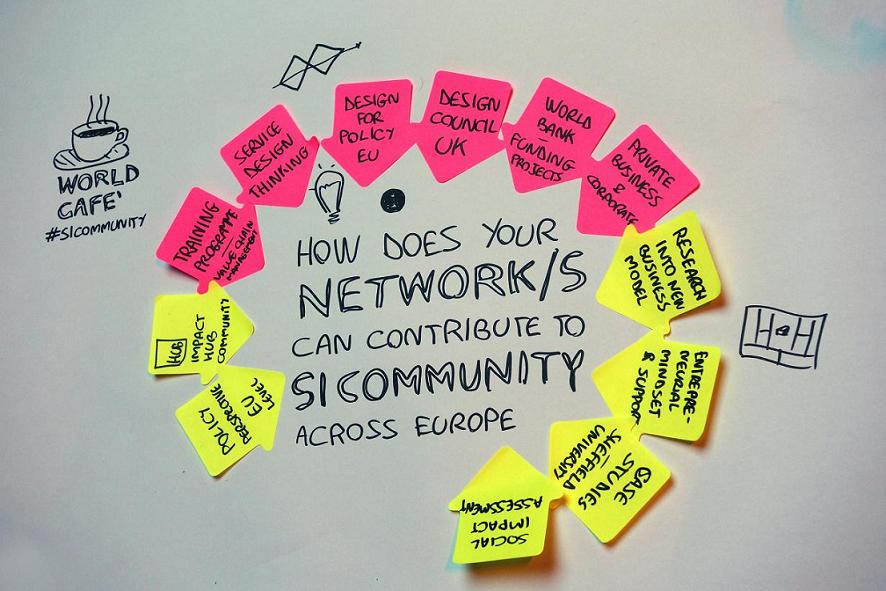 WORLD
CAFE'
#SICOMMUNITY
HOW DOES YOUR
NETWORK/S
CAN CONTRIBUTE TO
SICOMMUNITY
ACROSS EUROPE
POLICY
PERSPECTIVE
EU
LEVEL
HUB
IMPACT
HUB
COMMUNITY
TRAINING
PROGRAMME
VALUE CHAIN
MANAGEMENT
SERVICE
DESIGN
THINKING
DESIGN
FOR
POLICY
EU
DESIGN
COUNCIL
UK
WORLD
BANK
FUNDING
PROJECTS
PRIVATE
BUSINESS
&
CORPORATE
RESEARCH
INTO NEW
BUSINESS
MODEL
ENTREPRE-
NEURIAL
MINDSET
& SUPPORT
CASE
STUDIES
SHEFFIELD
UNIVERSITY
SOCIAL
IMPACT
ASSESSMENT